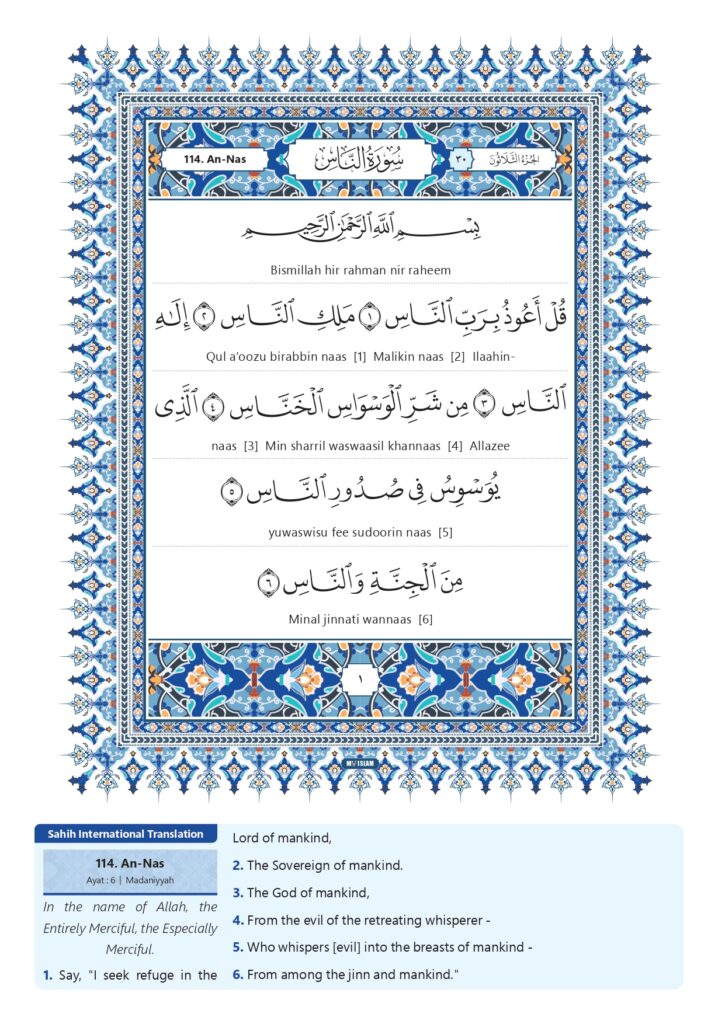 114. An-Nas
سُورَةُ النَّاسِ
٣٠
الجُزْءُ الثَّلَاثُونَ
بِسْمِ ٱللَّهِ ٱلرَّحْمَٰنِ ٱلرَّحِيمِ
Bismillah hir rahman nir raheem
قُلْ أَعُوذُ بِرَبِّ ٱلنَّاسِ ١ مَلِكِ ٱلنَّاسِ ٢ إِلَٰهِ
Qul a’oozu birabbin naas [1] Malikin naas [2] Ilaahin-
ٱلنَّاسِ ٣ مِن شَرِّ ٱلْوَسْوَاسِ ٱلْخَنَّاسِ ٤ ٱلَّذِى
naas [3] Min sharril waswaasil khannaas [4] Allazee
يُوَسْوِسُ فِى صُدُورِ ٱلنَّاسِ ٥
yuwaswisu fee sudoorin naas [5]
مِنَ ٱلْجِنَّةِ وَٱلنَّاسِ ٦
Minal jinnati wannaas [6]
١
MY ISLAM
Sahih International Translation
114. An-Nas
Ayat : 6 | Madaniyyah
In the name of Allah, the
Entirely Merciful, the Especially
Merciful.
1. Say, "I seek refuge in the
Lord of mankind,
2. The Sovereign of mankind.
3. The God of mankind,
4. From the evil of the retreating whisperer -
5. Who whispers [evil] into the breasts of mankind -
6. From among the jinn and mankind."